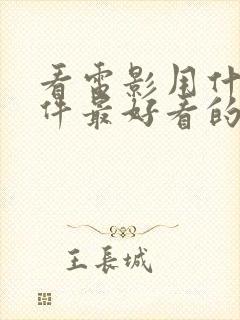 看电影用什
件最好看的
王長城